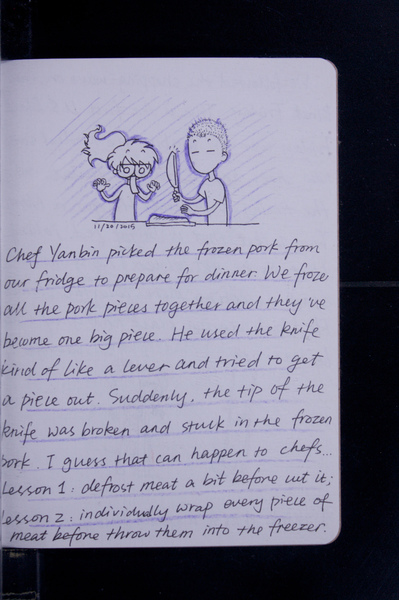 11/20/2015
Chef Yanbin picked the frozen pork from
our fridge to prepare for dinner. We froze
all the pork pieces together and they've
become one big piece. He used the knife
kind of like a lever and tried to get
a piece out. Suddenly, the tip of the
knife was broken and stuck in the frozen
pork. I guess that can happen to chefs...
Lesson 1: defrost meat a bit before cut it;
Lesson 2: individually wrap every piece of
meat before throw them into the freezer.